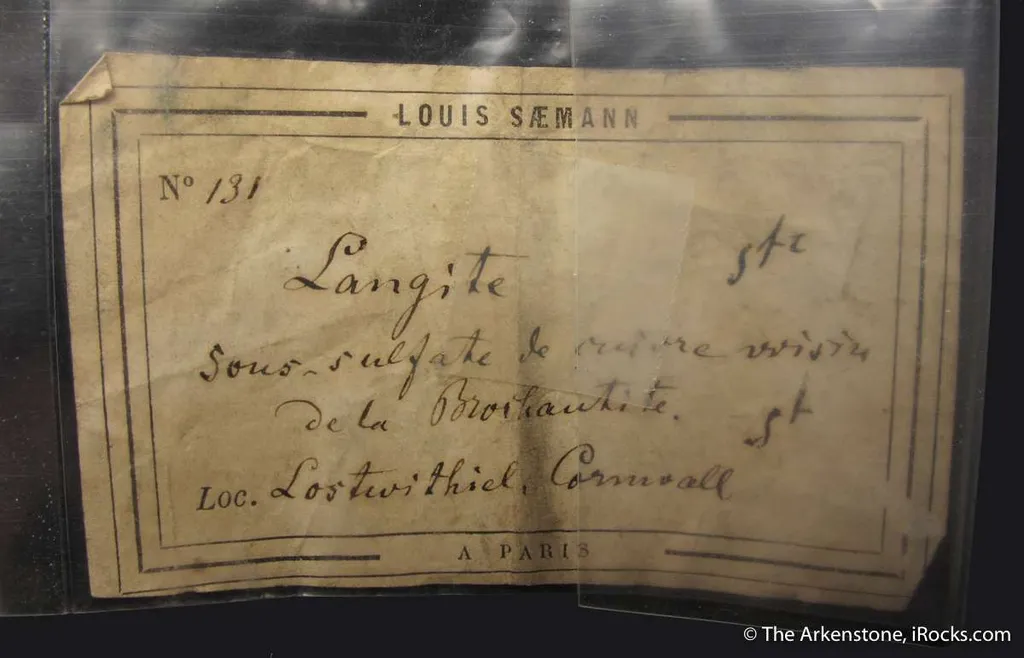 LOUIS SÆMANN
Nº 131
Langite
Sous-sulfate de cuivre voisin
de la Brochantite.
Loc. Lostwithiel, Cornwall
A PARIS
© The Arkenstone, iRocks.com